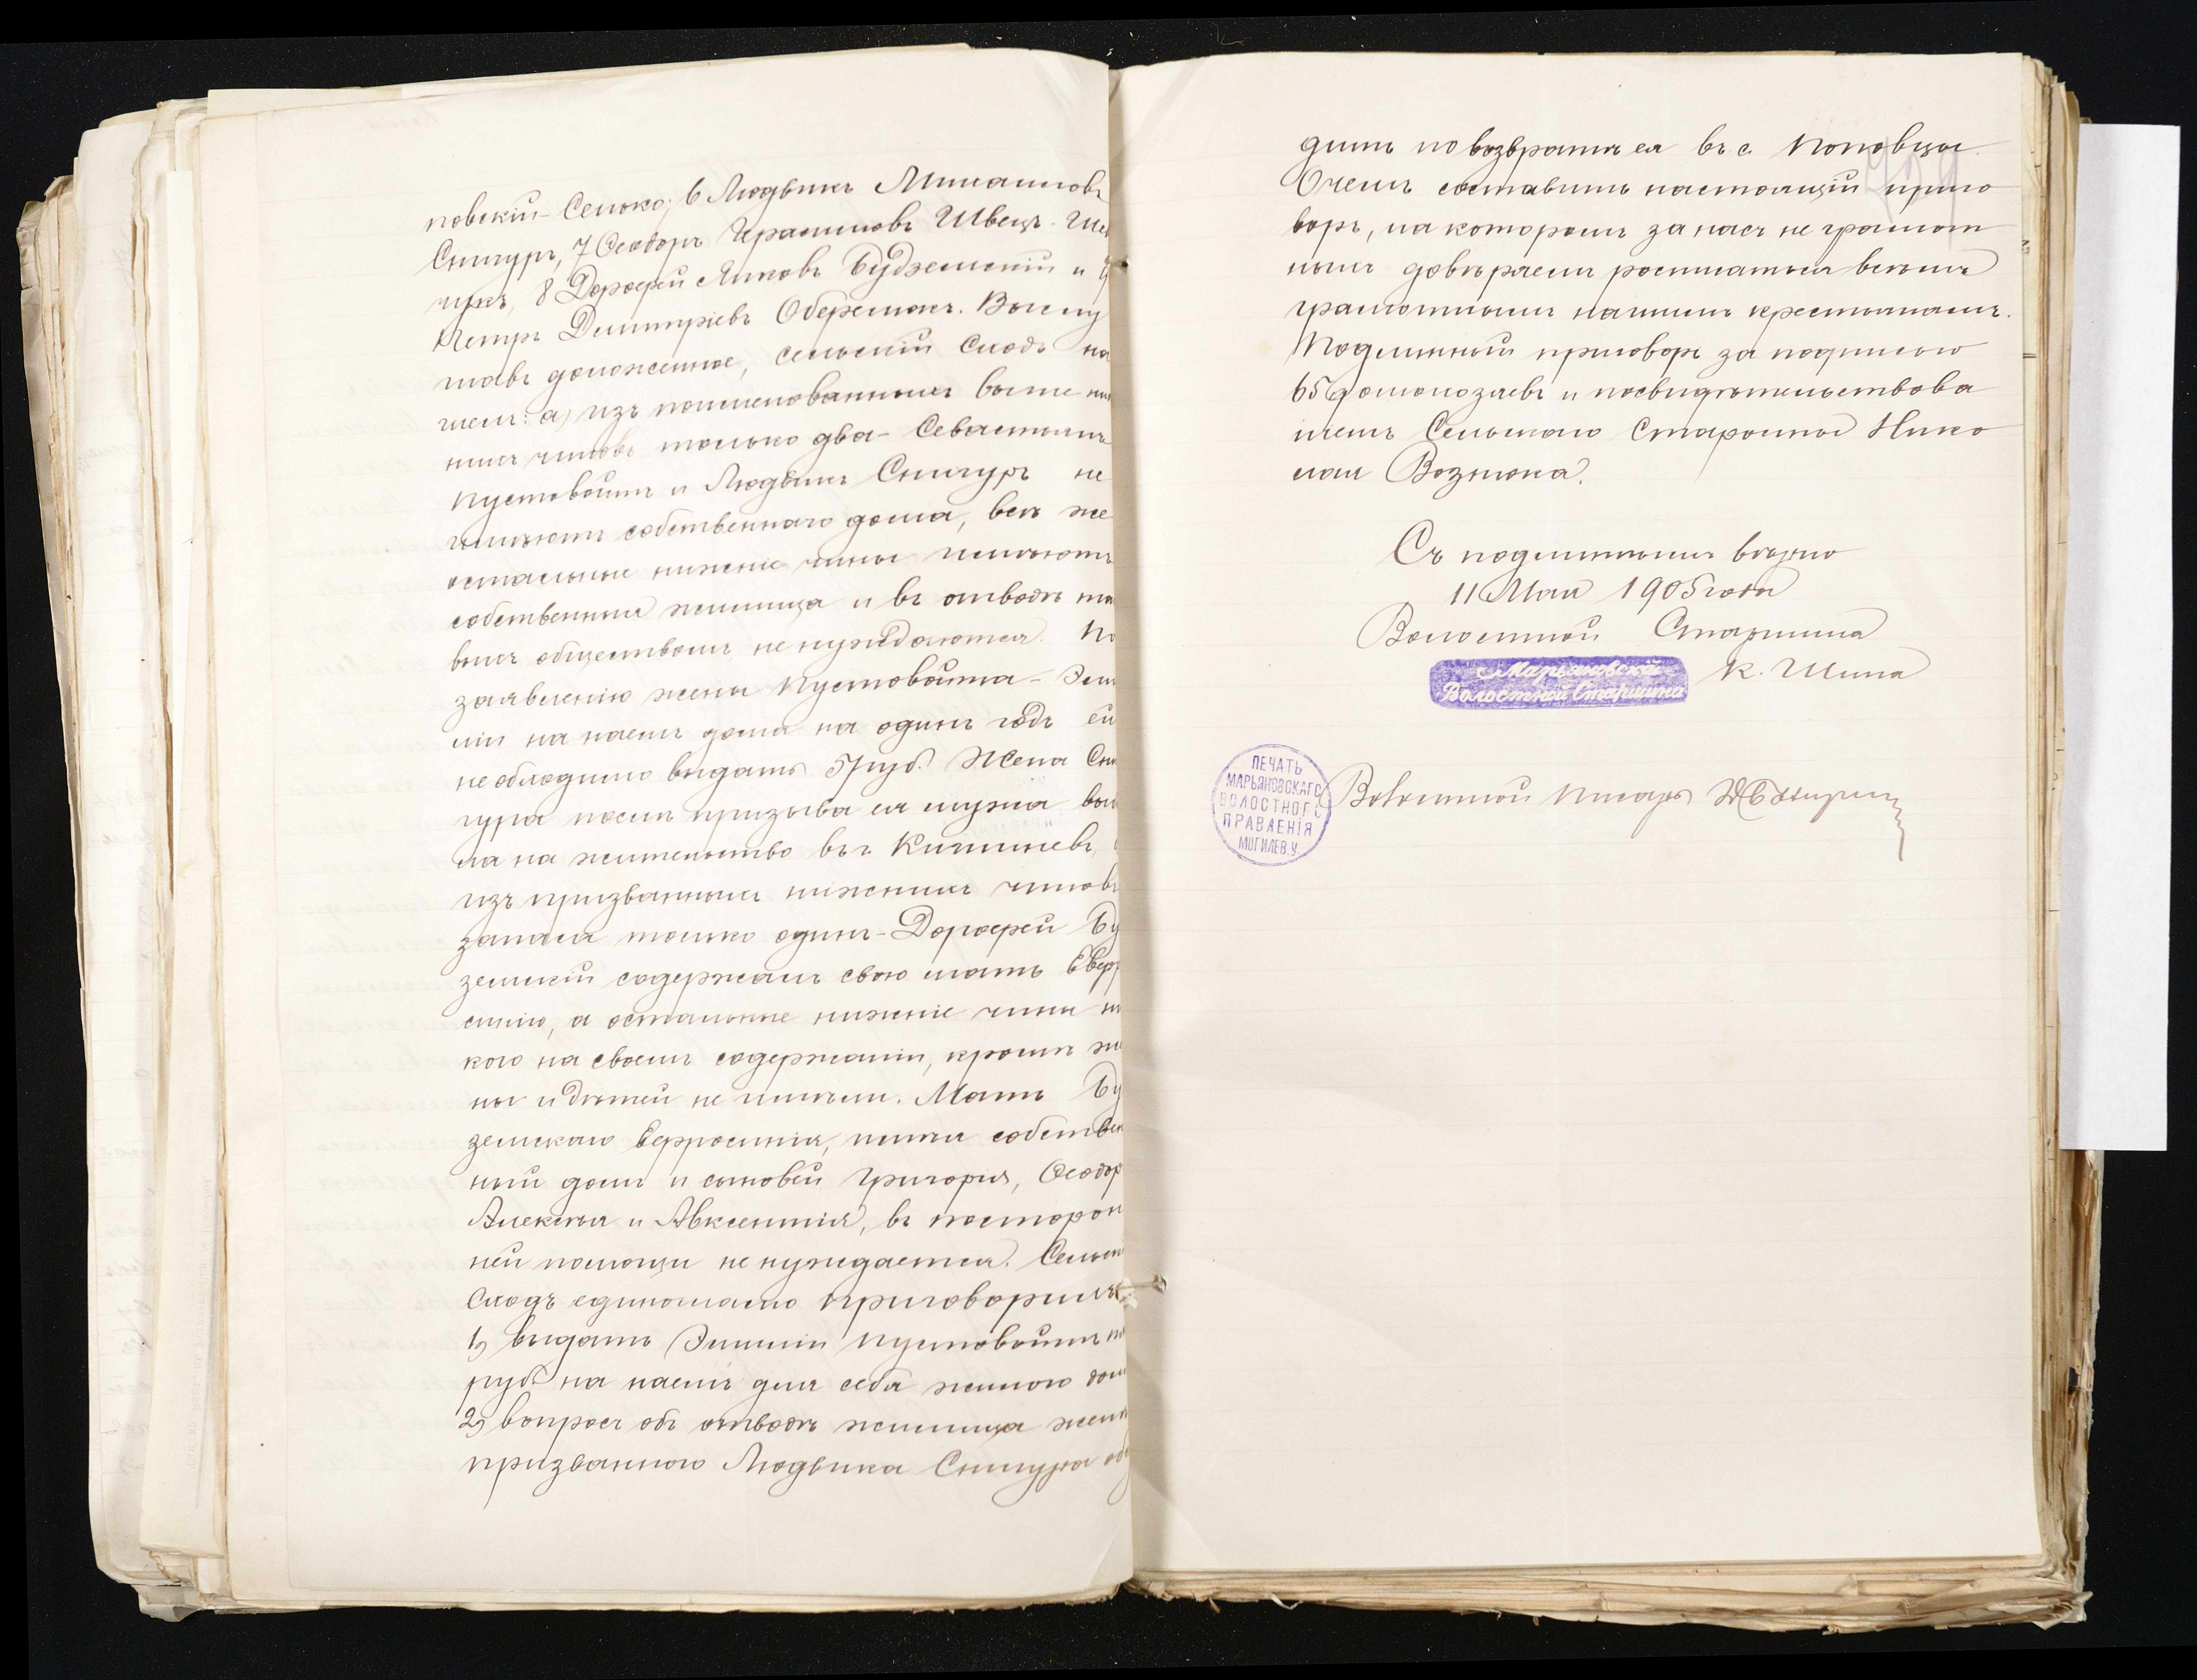 повскій-Сенько, 6 Людвикъ Михаиловъ
Снигуръ, 7 Ѳеодоръ Герасимовъ Швецъ-Шев
чукъ, 8 Дороѳей Яковъ Будземскій и 9
Петръ Дмитріевъ Оберемокъ. Выслу
шавъ доложенное, сельскій сходъ на
шелъ: а) изъ поименованныхъ выше ниж
нихъ чиновъ только два- Севастьянъ
Пустовойтъ и Людвикъ Снигуръ не
имѣютъ собственнаго дома, всѣ же
остальные нижніе чины имѣютъ
собственныя жилища и въ отводѣ та
выхъ обществомъ не нуждаются. По
заявленію жены Пустовойта- Эми
ліи на наемъ дома на одинъ годъ ей
необходимо выдать 5 руб. Жена Сни
гура послѣ призыва ея мужа вы
ла на жительство въ г. Кишиневъ,
изъ призванныхъ нижнихъ чиновъ
запаса только одинъ- Дороѳей Бу
земскій содержалъ свою мать Евфр
синію, а остальные нижніе чины ни
кого на своемъ содержаніи, кромѣ же
ны и дѣтей не имѣли. Мать Бу
земскаго Ефросинія, имѣя собствен
ный домъ и сыновей Григорія, Ѳеодор
Алексѣя и Авксентія, въ посторон
ней помощи не нуждается. Сельск
Сходъ единогласно приговорилъ:
1) выдать Эмиліи Пустовойтъ
руб. на наемъ для себя жилого дом
2) вопросъ объ отводѣ жилища женѣ
призваннаго Людвика Снигура об
дить по возвратѣ ея въ с. Поповцы.
О чемъ составить настоящій приго
воръ, на которомъ за насъ не грамот
ныхъ довѣряемъ росписаться всѣмъ
грамотнымъ нашимъ крестьянамъ.
Подлинный приговоръ за подписью
65 домохозяевъ и посвидѣтельствова
ніемъ Сельскаго Старосты Нико
лая Вознюка.
Съ подлиннымъ вѣрно
11 Мая 1905 года
Волостной Старшина
Марьяновскій
Волостной Старшина
К. Шипа
ПЕЧАТЬ
МАРЬЯНОВСКАГО
ВОЛОСТНОГО
ПРАВЛЕНІЯ
МОГИЛЕВ.У.
Волостной Писарь